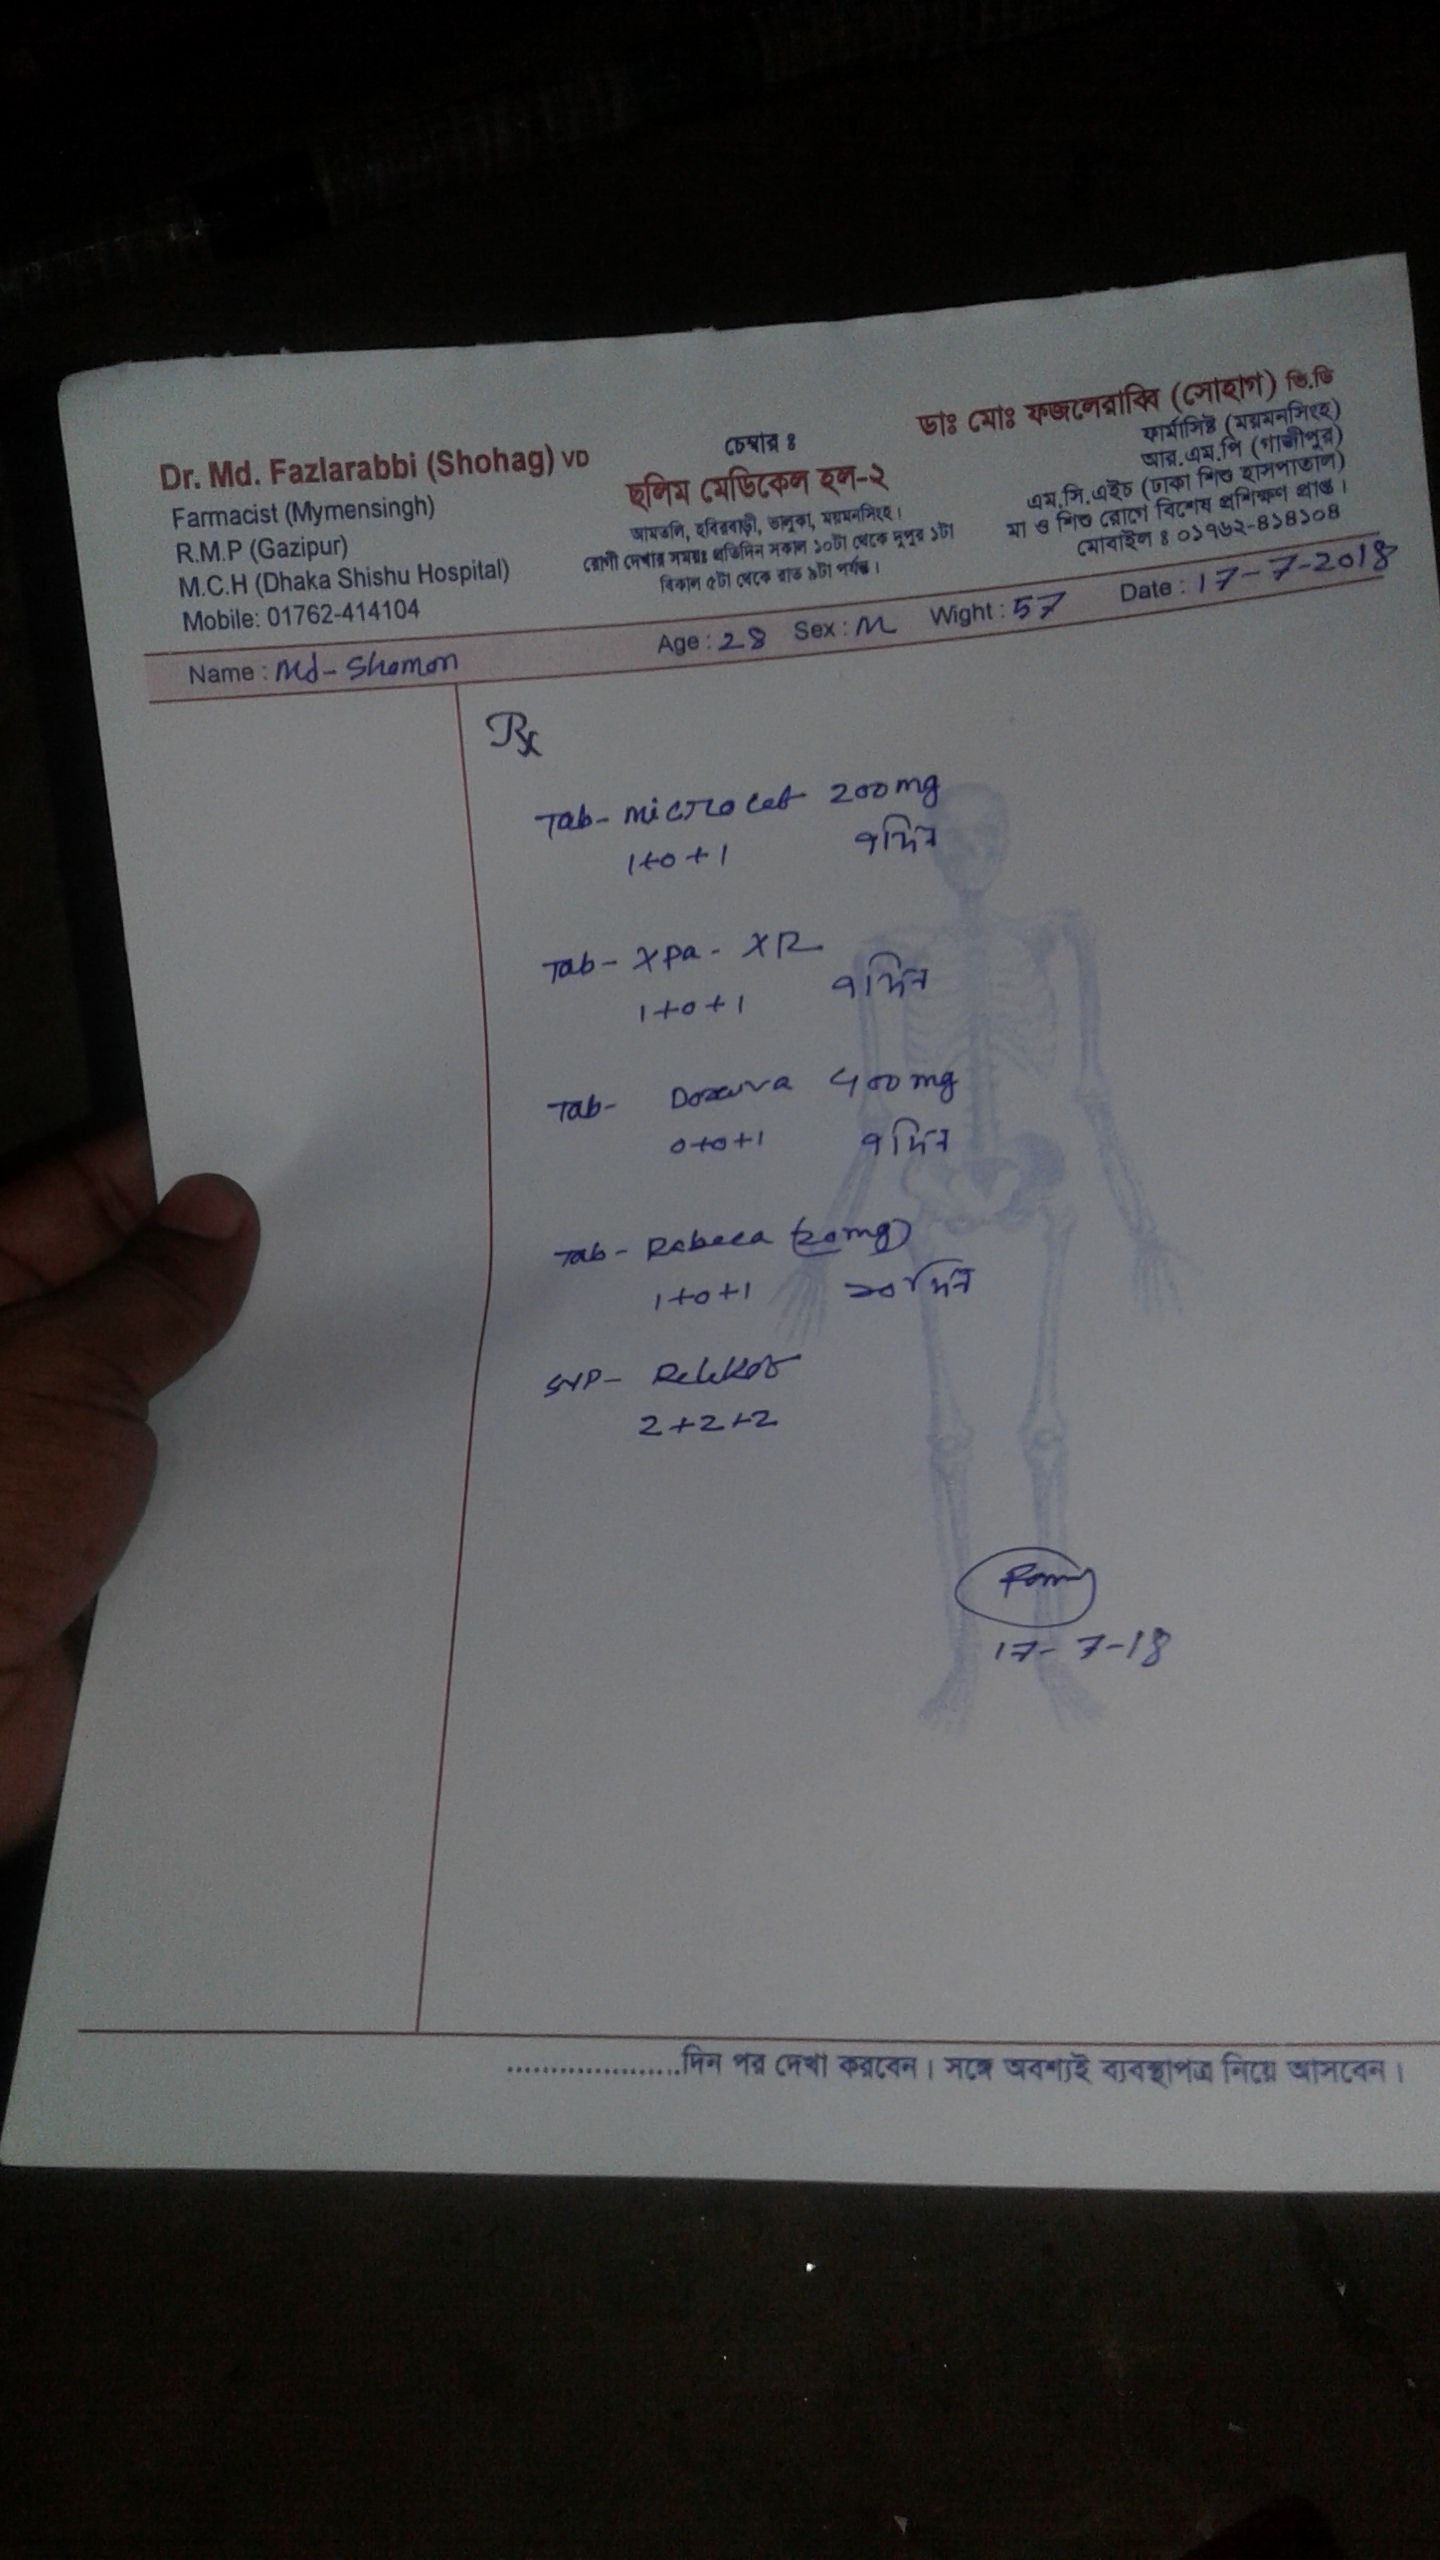 Dr. Md. Fazlarabbi (Shohag) VD
Farmacist (Mymensingh)
R.M.P (Gazipur)
M.C.H (Dhaka Shishu Hospital)
Mobile: 01762-414104
চেম্বার ঃ
ছলিম মেডিকেল হল-২
আমতলি, হবিরবাড়ী, ভালুকা, ময়মনসিংহ।
রোগী দেখার সময়ঃ প্রতিদিন সকাল ১০টা থেকে দুপুর ১টা
বিকাল ৫টা থেকে রাত ৯টা পর্যন্ত।
ডাঃ মোঃ ফজলেরাব্বি (সোহাগ) ভি.ডি
ফার্মাসিষ্ট (ময়মনসিংহ)
আর.এম.পি (গাজীপুর)
এম.সি.এইচ (ঢাকা শিশু হাসপাতাল)
মা ও শিশু রোগে বিশেষ প্রশিক্ষণ প্রাপ্ত।
মোবাইল ঃ ০১৭৬২-৪১৪১০৪
Name : Md- Shamon Age : 28 Sex : M Wight : 57 Date : 17-7-2018
Rx
Tab- Microcef 200mg
1+0+1 ৭দিন
Tab- Xpa- XR
1+0+1 ৭দিন
Tab- Doxuva 400mg
0+0+1 ৭দিন
Tab- Rabeca (20mg)
1+0+1 ২০দিন
SYP-
2+2+2
17-7-18
....................দিন পর দেখা করবেন। সঙ্গে অবশ্যই ব্যবস্থাপত্র নিয়ে আসবেন।